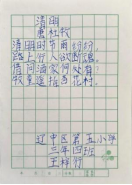 清明
唐杜牧
清明时节雨纷纷，
路上行人欲断魂。
借问酒家何处有，
牧童遥指杏花村。
辽中区第五小学
三年四班
王梓行